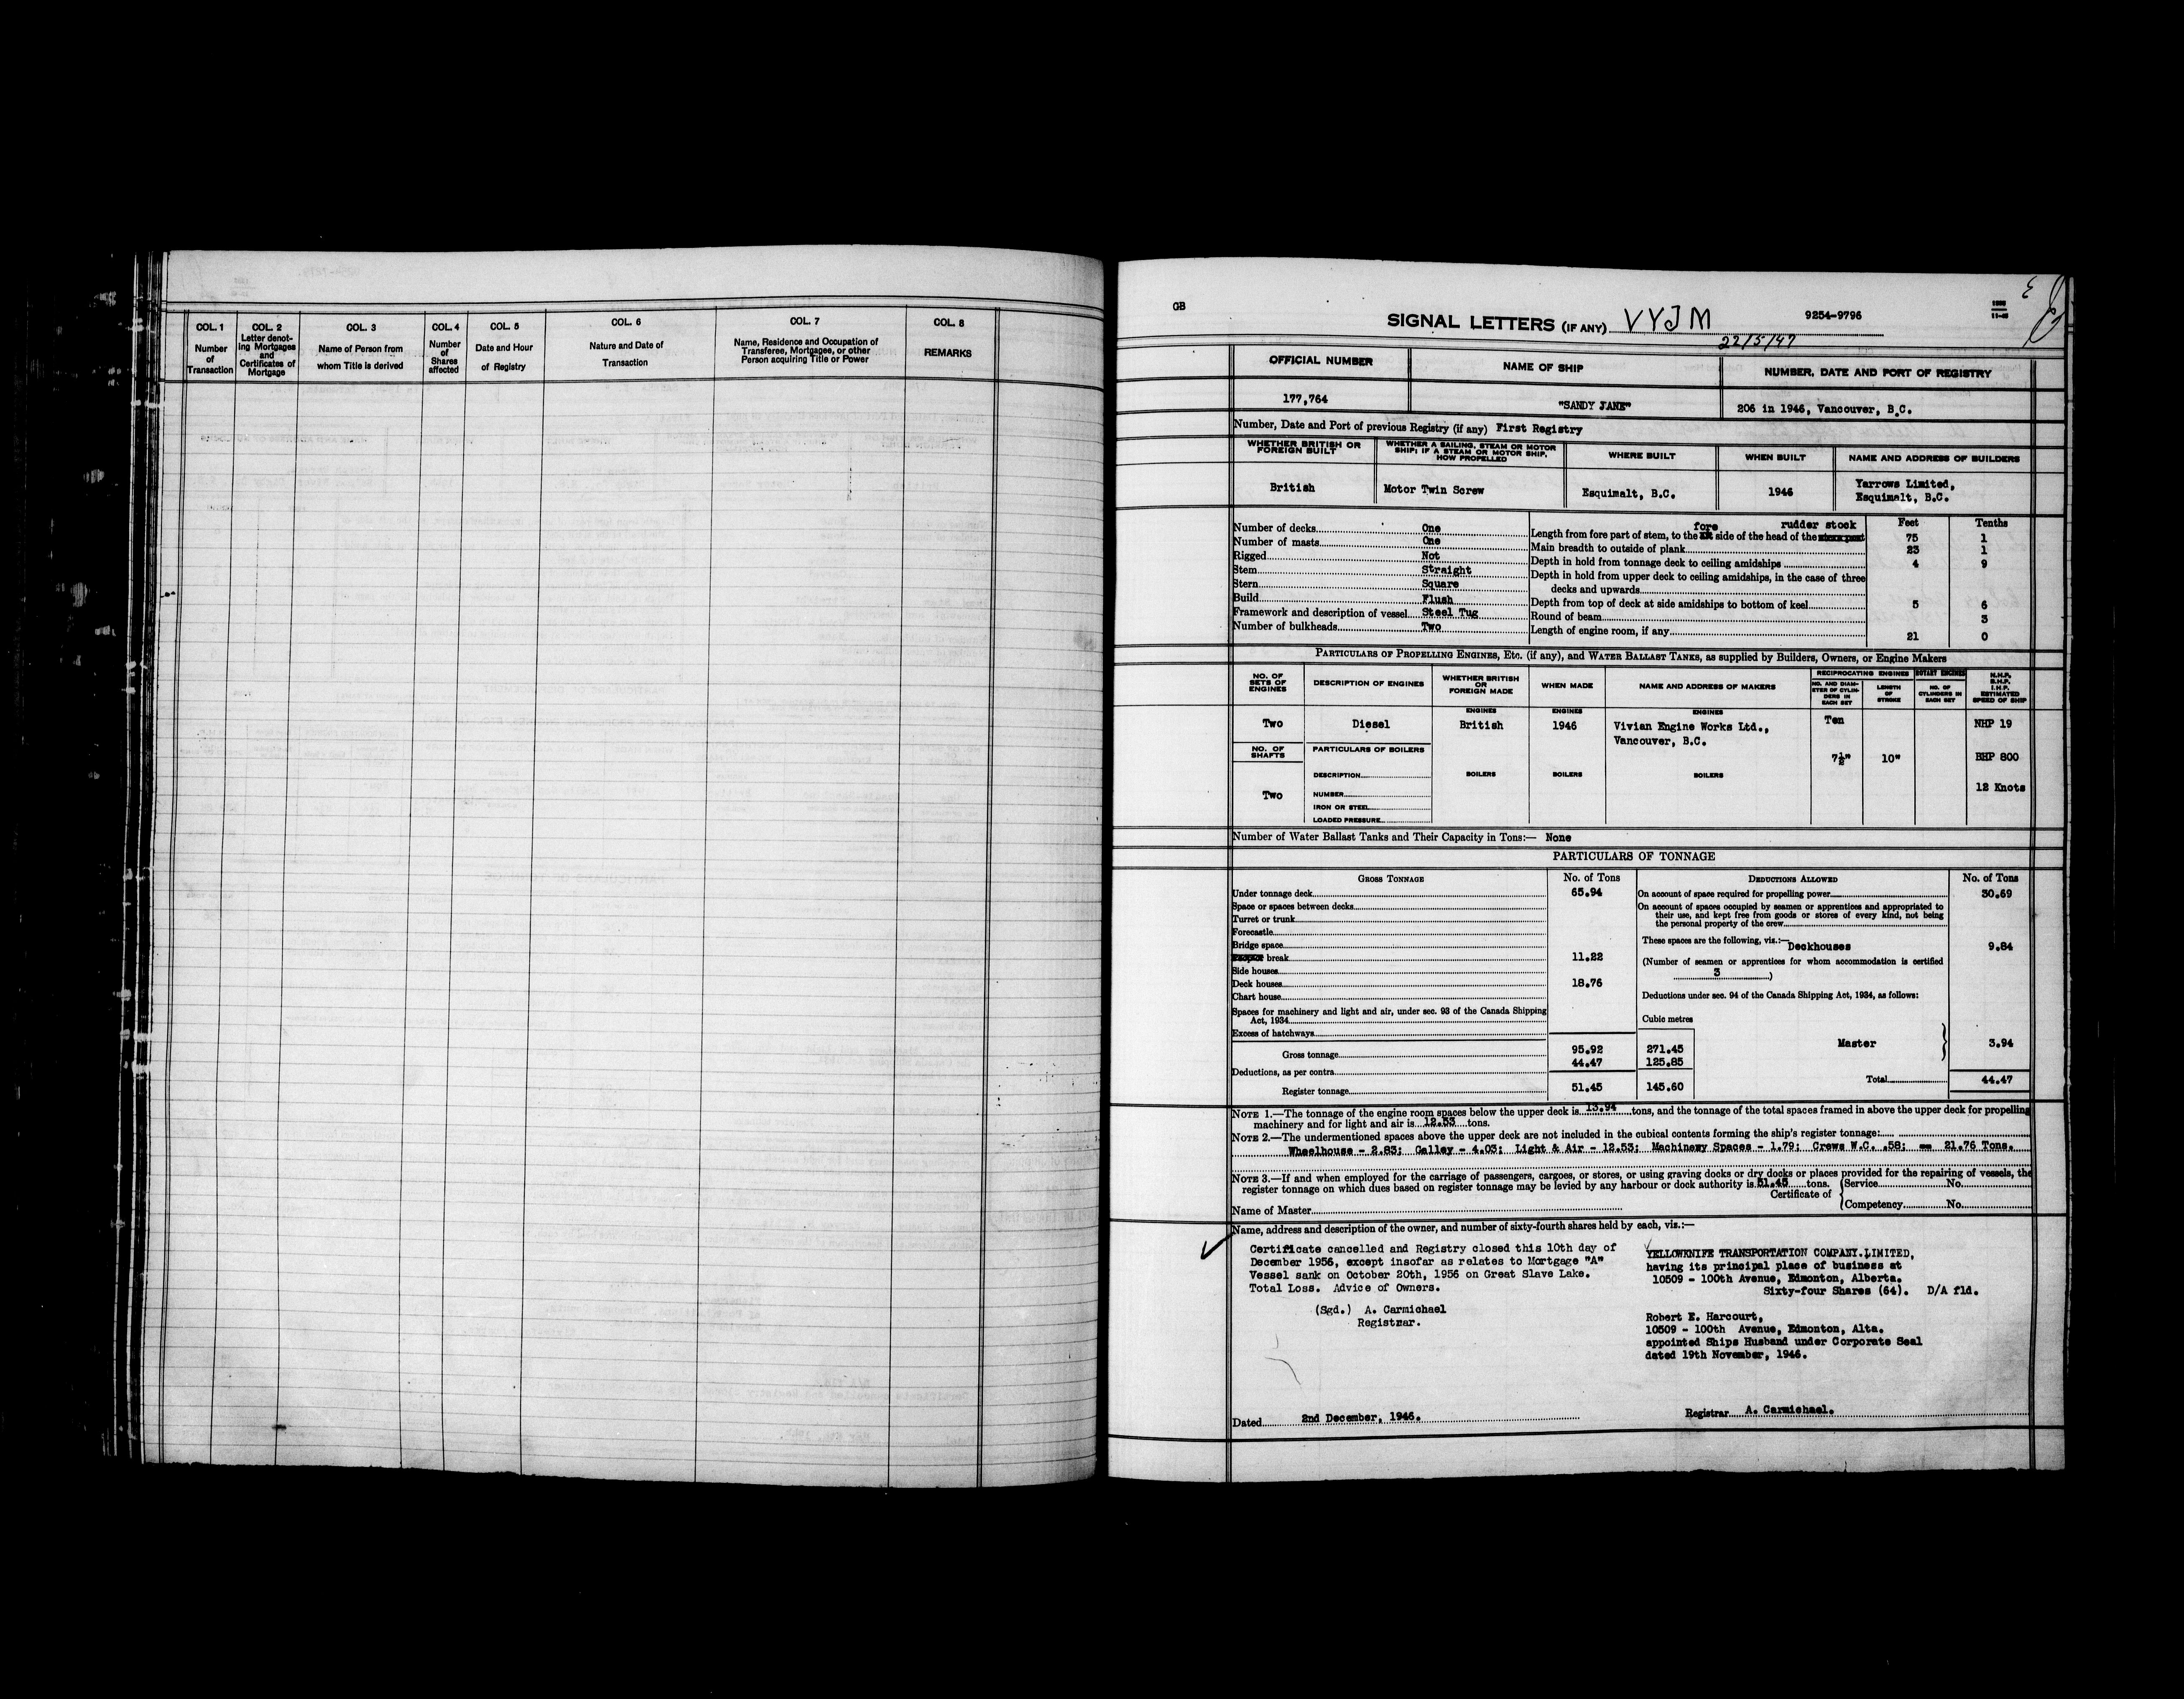 COL. 1
Number
of
Transaction
COL. 2
Letter denot-
ing Mortgages
and
Certificates of
Mortgage
COL. 3
Name of Person from
whom Title is derived
COL. 4
Number
of
Shares
affected
COL. 5
Date and Hour
of Registry
COL. 6
Nature and Date of
Transaction
COL. 7
Name, Residence and Occupation of
Transferee, Mortgagee, or other
Person acquiring Title or Power
COL. 8
REMARKS
GB
SIGNAL LETTERS (IF ANY) VYJM
9254-9796
22/5/47
OFFICIAL NUMBER
NAME OF SHIP
NUMBER, DATE AND PORT OF REGISTRY
177,764
"SANDY JANE"
206 in 1946, Vancouver, B.C.
Number, Date and Port of previous Registry (if any) First Registry
WHETHER BRITISH OR
FOREIGN BUILT
WHETHER A SAILING, STEAM OR MOTOR
SHIP; IF A STEAM OR MOTOR SHIP,
HOW PROPELLED
WHERE BUILT
WHEN BUILT
NAME AND ADDRESS OF BUILDERS
British
Motor Twin Screw
Esquimalt, B.C.
1946
Yarrows Limited,
Esquimalt, B.C.
Number of decks One
Number of masts One
Rigged Not
Stem Straight
Stern Square
Build Flush
Framework and description of vessel Steel Tug
Number of bulkheads Two
Feet Tenths
fore rudder stock
Length from fore part of stem, to the side of the head of the 75 1
Main breadth to outside of plank 23 1
Depth in hold from tonnage deck to ceiling amidships 4 9
Depth in hold from upper deck to ceiling amidships, in the case of three
decks and upwards
Depth from top of deck at side amidships to bottom of keel 5 6
Round of beam 3
Length of engine room, if any 21 0
PARTICULARS OF PROPELLING ENGINES, ETC. (if any), and WATER BALLAST TANKS, as supplied by Builders, Owners, or Engine Makers
NO. OF
SETS OF
ENGINES
DESCRIPTION OF ENGINES
WHETHER BRITISH
OR
FOREIGN MADE
WHEN MADE
NAME AND ADDRESS OF MAKERS
RECIPROCATING ENGINES
NO. AND DIAM-
ETER OF CYLIN-
DERS IN
EACH SET
LENGTH
OF
STROKE
ROTARY ENGINES
NO. OF
CYLINDERS IN
EACH SET
N.H.P.
B.H.P.
I.H.P.
ESTIMATED
SPEED OF SHIP
ENGINES
ENGINES
ENGINES
Two
Diesel
British
1946
Vivian Engine Works Ltd.,
Vancouver, B.C.
Ten
7½"
10"
NHP 19
BHP 800
12 Knots
NO. OF
SHAFTS
Two
PARTICULARS OF BOILERS
DESCRIPTION
NUMBER
IRON OR STEEL
LOADED PRESSURE
BOILERS
BOILERS
BOILERS
Number of Water Ballast Tanks and Their Capacity in Tons:— None
PARTICULARS OF TONNAGE
GROSS TONNAGE
No. of Tons
Under tonnage deck 65.94
Space or spaces between decks
Turret or trunk
Forecastle
Bridge space
break 11.22
Side houses
Deck houses 18.76
Chart house
Spaces for machinery and light and air, under sec. 93 of the Canada Shipping
Act, 1934
Excess of hatchways
Cubic metres
Gross tonnage 95.92 271.45
Deductions, as per contra 44.47 125.85
Register tonnage 51.45 145.60
DEDUCTIONS ALLOWED
No. of Tons
On account of space required for propelling power 30.69
On account of spaces occupied by seamen or apprentices and appropriated to
their use, and kept free from goods or stores of every kind, not being
the personal property of the crew
These spaces are the following, viz.:— Deckhouses 9.84
(Number of seamen or apprentices for whom accommodation is certified
3 )
Deductions under sec. 94 of the Canada Shipping Act, 1934, as follows:
Master 3.94
Total 44.47
NOTE 1.—The tonnage of the engine room spaces below the upper deck is 13.94 tons, and the tonnage of the total spaces framed in above the upper deck for propelling
machinery and for light and air is 12.53 tons.
NOTE 2.—The undermentioned spaces above the upper deck are not included in the cubical contents forming the ship's register tonnage:
Wheelhouse - 2.83; Galley - 4.03; Light & Air - 12.53; Machinery Spaces - 1.79; Crews W.C. .58; == 21.76 Tons.
NOTE 3.—If and when employed for the carriage of passengers, cargoes, or stores, or using graving docks or dry docks or places provided for the repairing of vessels, the
register tonnage on which dues based on register tonnage may be levied by any harbour or dock authority is 51.45 tons.
Name of Master
Certificate of
Service No.
Competency No.
Name, address and description of the owner, and number of sixty-fourth shares held by each, viz.:—
Certificate cancelled and Registry closed this 10th day of
December 1956, except insofar as relates to Mortgage "A"
Vessel sank on October 20th, 1956 on Great Slave Lake.
Total Loss. Advice of Owners.
(Sgd.) A. Carmichael
Registrar.
YELLOWKNIFE TRANSPORTATION COMPANY.LIMITED,
having its principal place of business at
10509 - 100th Avenue, Edmonton, Alberta.
Sixty-four Shares (64). D/A fld.
Robert E. Harcourt,
10509 - 100th Avenue, Edmonton, Alta.
appointed Ships Husband under Corporate Seal
dated 19th November, 1946.
Dated 2nd December, 1946.
Registrar A. Carmichael.